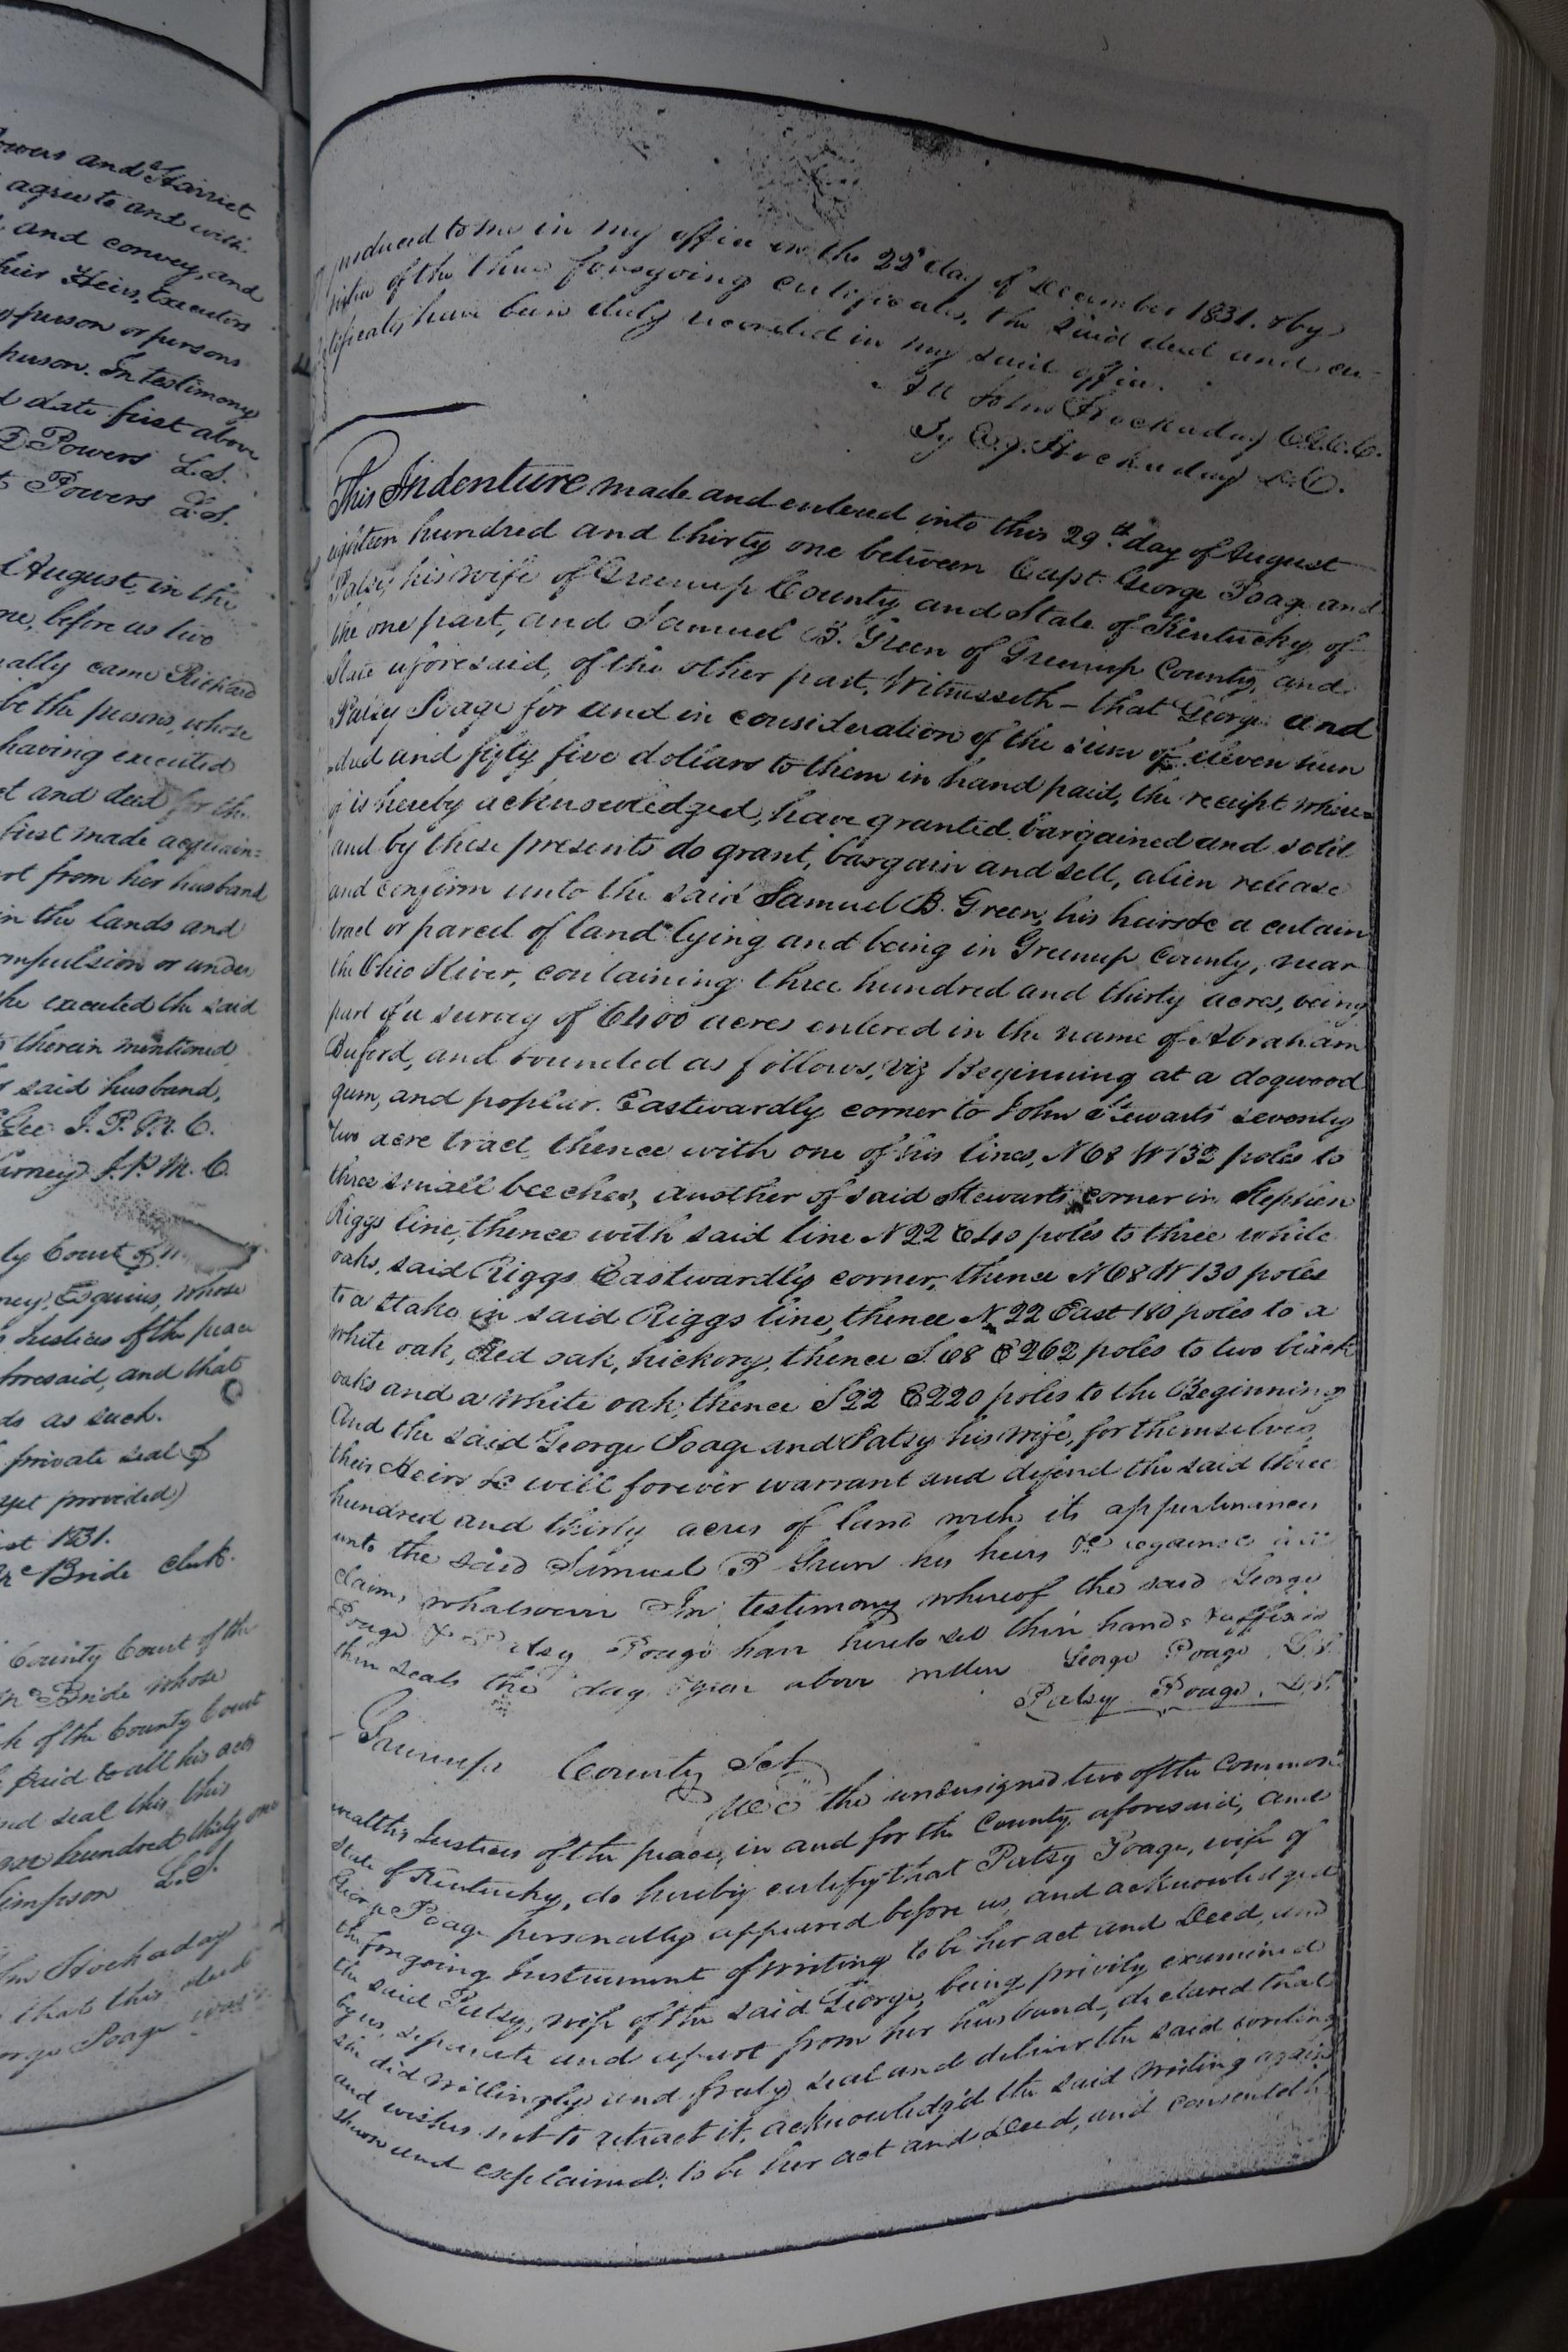 owers and Harriet
agree to and with
and convey, and
Heirs, Executors
person or persons
person. In testimony
date first above
Powers L.S.
Powers L.S.
August, in the
me, before us two
ally came Richard
be the persons, whose
having executed
and deed for the
first made acquain=
from her husband
in the lands and
ompulsion or under
she executed the said
therein mentioned
said husband,
Lee J. P. M. C.
J. P. M. C.
ly Court of
Esquires, whose
Justices of the peace
foresaid, and that
ds as such.
private seal of
yet provided)
st 1831.
McBride clerk.
County Court of the
McBride whose
of the County Court
said to all his acts
nd seal this, this
hundred thirty one
Simpson L.S
Hockaday
that this deed
Poage
produced to me in my office on the 22d day of December 1831. & by
of the three foregoing certificates, the said deed and cer-
tificates have been duly recorded in my said office.
Att John Hockaday C.G.C.C.
By Hockaday D.C.
This Indenture made and entered into this 29th day of August
eighteen hundred and thirty one between Capt. George Poage and
Patsy his wife of Greenup County and State of Kentucky of
the one part, and Samuel B. Green of Greenup County, and
State aforesaid, of the other part, Witnesseth – that George and
Patsy Poage for and in consideration of the sum of eleven hun
dred and fifty five dollars to them in hand paid, the receipt where=
of is hereby acknowledged, have granted bargained and sold
and by these presents do grant, bargain and sell, alien release
and confirm unto the said Samuel B. Green, his heirs &c a certain
tract or parcel of land lying and being in Greenup County, near
the Ohio River, containing three hundred and thirty acres, being
part of a survey of 6400 acres entered in the name of Abraham
Buford, and bounded as follows, viz Beginning at a dogwood
gum, and poplar. Eastwardly corner to John Stewarts seventy
two acre tract, thence with one of his lines, N68 W132 poles to
three small beeches, another of said Stewarts corner in Stephen
Riggs line, thence with said line N22 E40 poles to three white
oaks, said Riggs Eastwardly corner, thence N68 W130 poles
to a stake in said Riggs line, thence N 22 East 180 poles to a
white oak, Red oak, hickory, thence S. 68 E262 poles to two black
oaks and a white oak, thence S22 E220 poles to the Beginning
And the said George Poage and Patsy his wife, for themselves,
their Heirs &c will forever warrant and defend the said three
hundred and thirty acres of land with its appurtinances
unto the said Samuel B Green his heirs &c against all
claims whatsoever In testimony whereof the said George
Poage & Patsy Poage have hereto set their hands & affixed
their seals the day & year above written George Poage L.S.
Patsy Poage. L.S.
Greenup County Sct
We the undersigned two of the common
wealths Justices of the peace, in and for the County aforesaid, and
State of Kentucky, do hereby certify that Patsy Poage, wife of
George Poage personally appeared before us, and acknowledged
the forgoing Instrument of writing to be her act and Deed, and
the said Patsy, wife of the said George, being privily examined
by us, seperate and apart from her husband, declared that
she did willingly and freely seal and deliver the said writing
and wishes not to retract it, acknowledg'd the said writing again
shewn and explained, to be her act and Deed, and consented